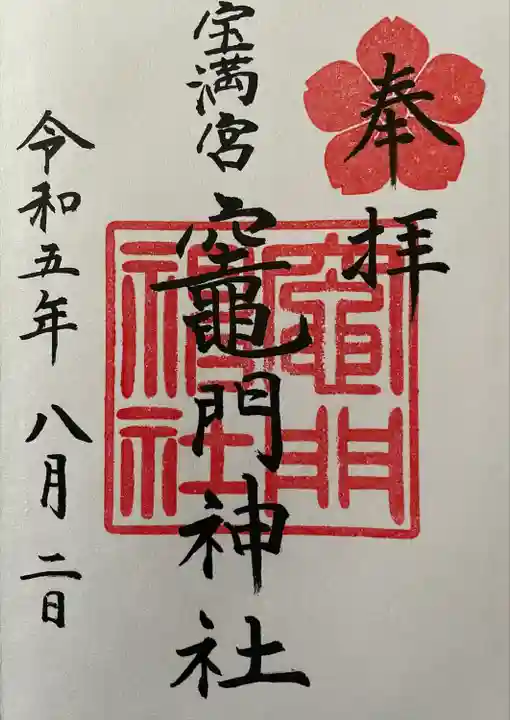 奉拝
宝満宮
竈門神社
竈門神社
令和五年八月二日